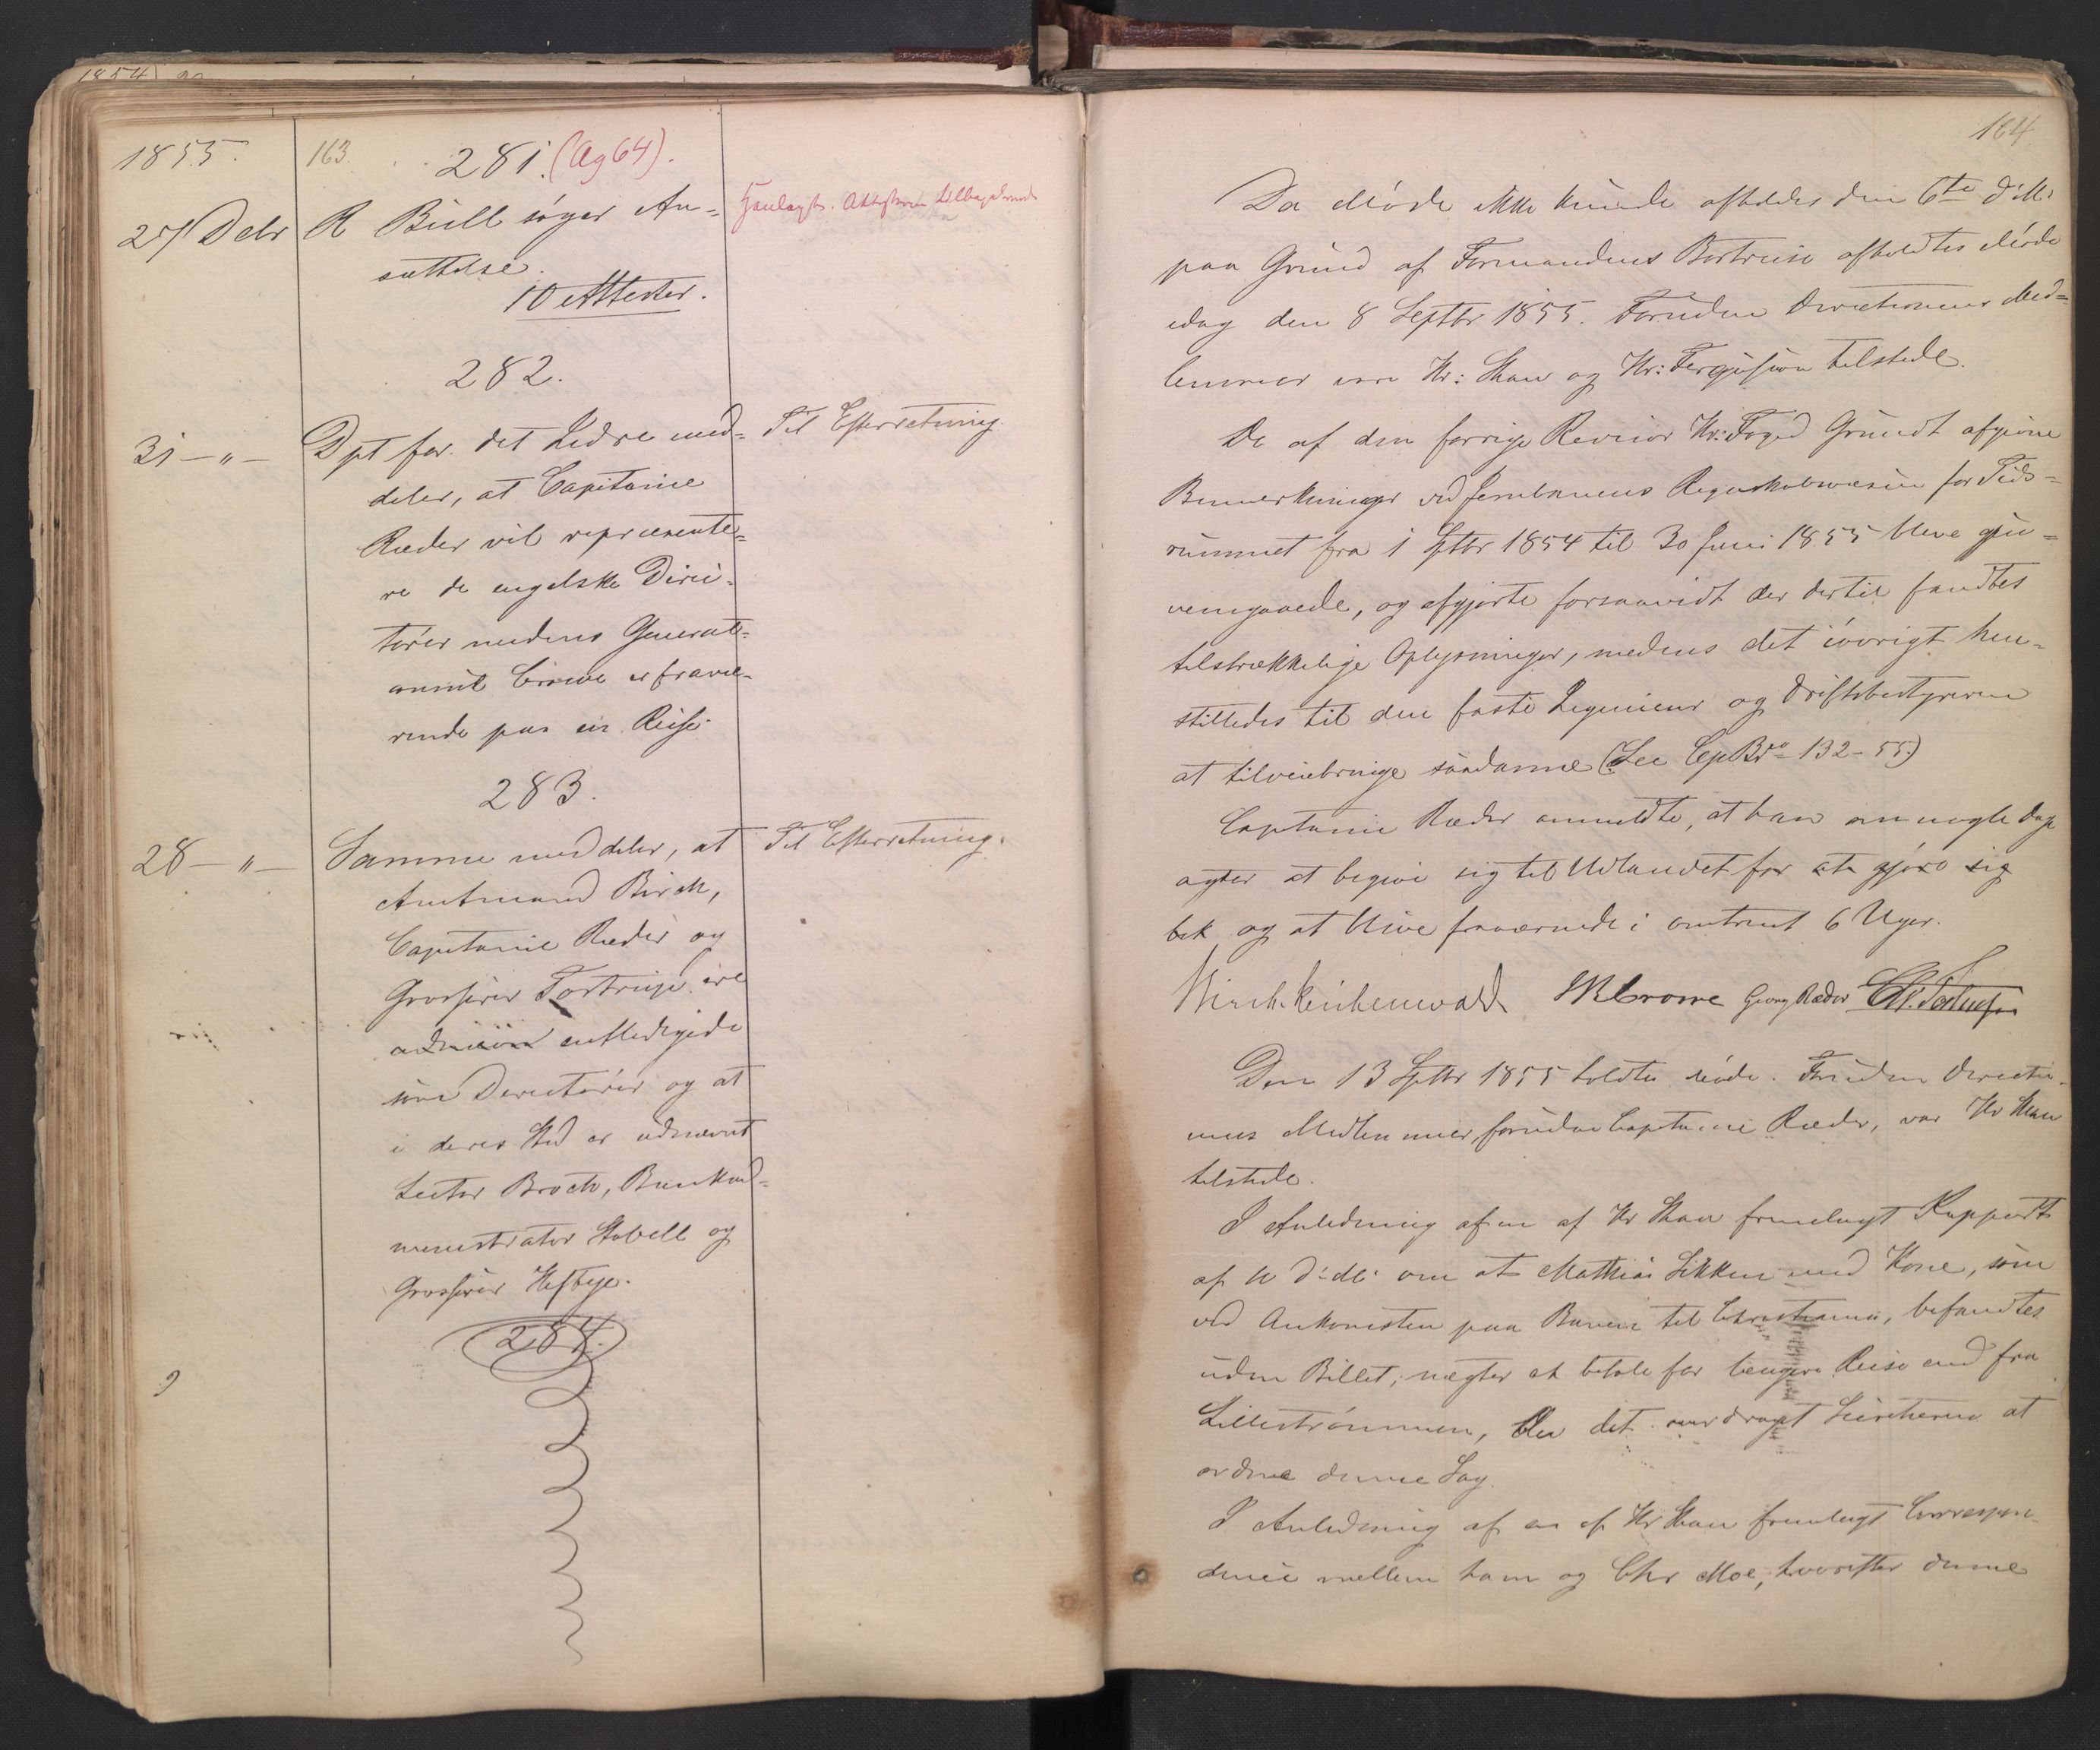 1854
1855.
163.
281. (Ag 64).
27 Debr
R Bull søger An=
sættelse.
10 Attester.
Henlagt. Attesterne tilbagesendt
282.
31 — " —
Dpt for det Indre med=
deler, at Capitaine
Ræder vil repræsente=
re de engelske Direc=
tører medens General=
consul Crowe er fravæ=
rende paa en Reise.
Til Efterretning
283.
28 — " —
Samme meddeler, at
Amtmand Birch,
Capitaine Ræder og
Grosserer Tostrup ere
entledigede
som Directører og at
i deres Sted er udnævnt
Lector Broch, Bankad=
ministrator Stabell og
Grosserer Heftye.
Til Efterretning.
284.
164
Da Møde ikke kunde afholdes den 6te d: M:
paa Grund af Formandens Bortreise afholdtes Møde
idag den 8 Septbr 1855. Foruden Directionens Med=
lemmer vare Hr: Shaw og Hr: Ferguson tilstede.
De af den forrige Revisor Hr: Foged Grundt afgivne
Bemærkninger ved Jernbanens Regnskabsvæsen for Tids=
rummet fra 1 Sptbr 1854 til 30 Juni 1855 bleve gjen=
nemgaaede, og afgjorte forsaavidt der dertil fandtes
tilstrækkelige Oplysninger, medens det iøvrigt hen=
stilledes til den faste Ingenieur og Driftsbestyreren
at tilveiebringe saadanne (See CopBr 132-55)
Capitaine Ræder anmeldte, at han om nogle Dage
agter at begive sig til Udlandet for at gjøre sig
bek og at blive fraværende i omtrent 6 Uger.
Birch-Reichenwald JRCrowe Georg Ræder
Den 13 Sptbr 1855 holdtes Møde. Foruden Directio=
nens Medlemmer, foruden Capitaine Ræder, var Hr Shaw
tilstede.
I Anledning af en af Hr Shaw fremlagt Rapport
af 11 d: M: om at Mathias Sikken med Kone, som
ved Ankomsten paa Banen til Christiania, befandtes
uden Billet, nægter at betale for længere Reise end fra
Lillestrømmen, blev det overdraget at
ordne denne Sag.
I Anledning af en af Hr Shaw fremlagt Correspon=
dence mellem ham og Chr Moe, hvorefter denne